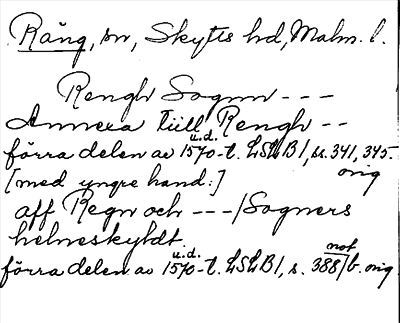 Räng, sn, Skytts hd, Malm. l.
Rengh Sogнn ---
Annexa tiill Rengh --
förra delen av 1570-t. u.d. LSLB1, ss. 341, 345. orig
[med yngre hand:]
aff Regn och ---/Sogners
helneskyldt.
förra delen av 1570-t. u.d. LSLB1, s. 388/b. not orig